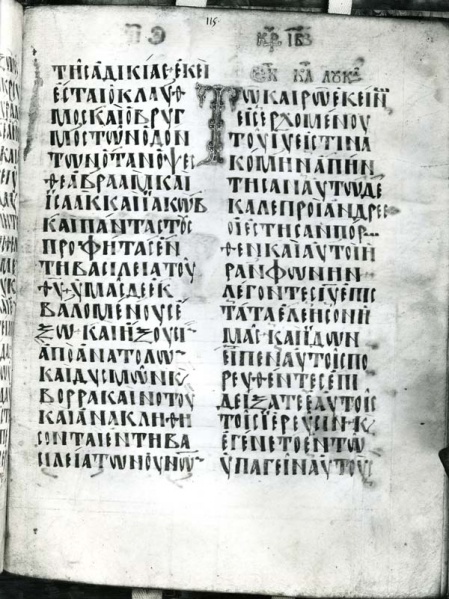 115
ΤΗϹΑΔΙΚΙΑϹ·ΕΚΕΙ
ΕϹΤΑΙΟΚΛΑΥΘ
ΜΟϹΚΑΙΟΒΡΥΓ
ΜΟϹΤΩΝΟΔΟΝ
ΤΩΝΟΤΑΝΟΨΕϹ
ΘΕΑΒΡΑΑΜΚΑΙ
ΙϹΑΑΚΚΑΙΙΑΚΩΒ
ΚΑΙΠΑΝΤΑϹΤΟΥϹ
ΠΡΟΦΗΤΑϹΕΝ
ΤΗΒΑϹΙΛΕΙΑΤΟΥ
ΘΥ·ΥΜΑϹΔΕΕΚ
ΒΑΛΟΜΕΝΟΥϹΕ
ΞΩ·ΚΑΙΗΞΟΥϹΙ
ΑΠΟΑΝΑΤΟΛΩ
ΚΑΙΔΥϹΜΩΝΚ
ΒΟΡΡΑΚΑΙΝΟΤΟΥ
ΚΑΙΑΝΑΚΛΗΘΗ
ϹΟΝΤΑΙΕΝΤΗΒΑ
ϹΙΛΕΙΑΤΩΝΟΥΝΩ
ΚΥΡ ΙΒ
ΕΚ ΚΑ ΛΟΥΚ
ΤΩΚΑΙΡΩΕΚΕΙΝ
ΕΙϹΕΡΧΟΜΕΝΟΥ
ΤΟΥΙΥΕΙϹΤΙΝΑ
ΚΩΜΗΝΑΠΗΝ
ΤΗϹΑΝΑΥΤΩΔΕ
ΚΑΛΕΠΡΟΙΑΝΔΡΕϹ
ΟΙΕϹΤΗϹΑΝΠΟΡ
ΘΕΝΚΑΙΑΥΤΟΙΗ
ΡΑΝΦΩΝΗΝ
ΛΕΓΟΝΤΕϹΙΥΕΠΙϹ
ΤΑΤΑΕΛΕΗϹΟΝΗ
ΜΑϹ·ΚΑΙΙΔΩΝ
ΕΙΠΕΝΑΥΤΟΙϹΠΟ
ΡΕΥΘΕΝΤΕϹΕΠΙ
ΔΕΙΞΑΤΕΕΑΥΤΟΥϹ
ΤΟΙϹΙΕΡΕΥϹΙΝ·Κ
ΕΓΕΝΕΤΟΕΝΤΩ
ΥΠΑΓΕΙΝΑΥΤΟΥϹ